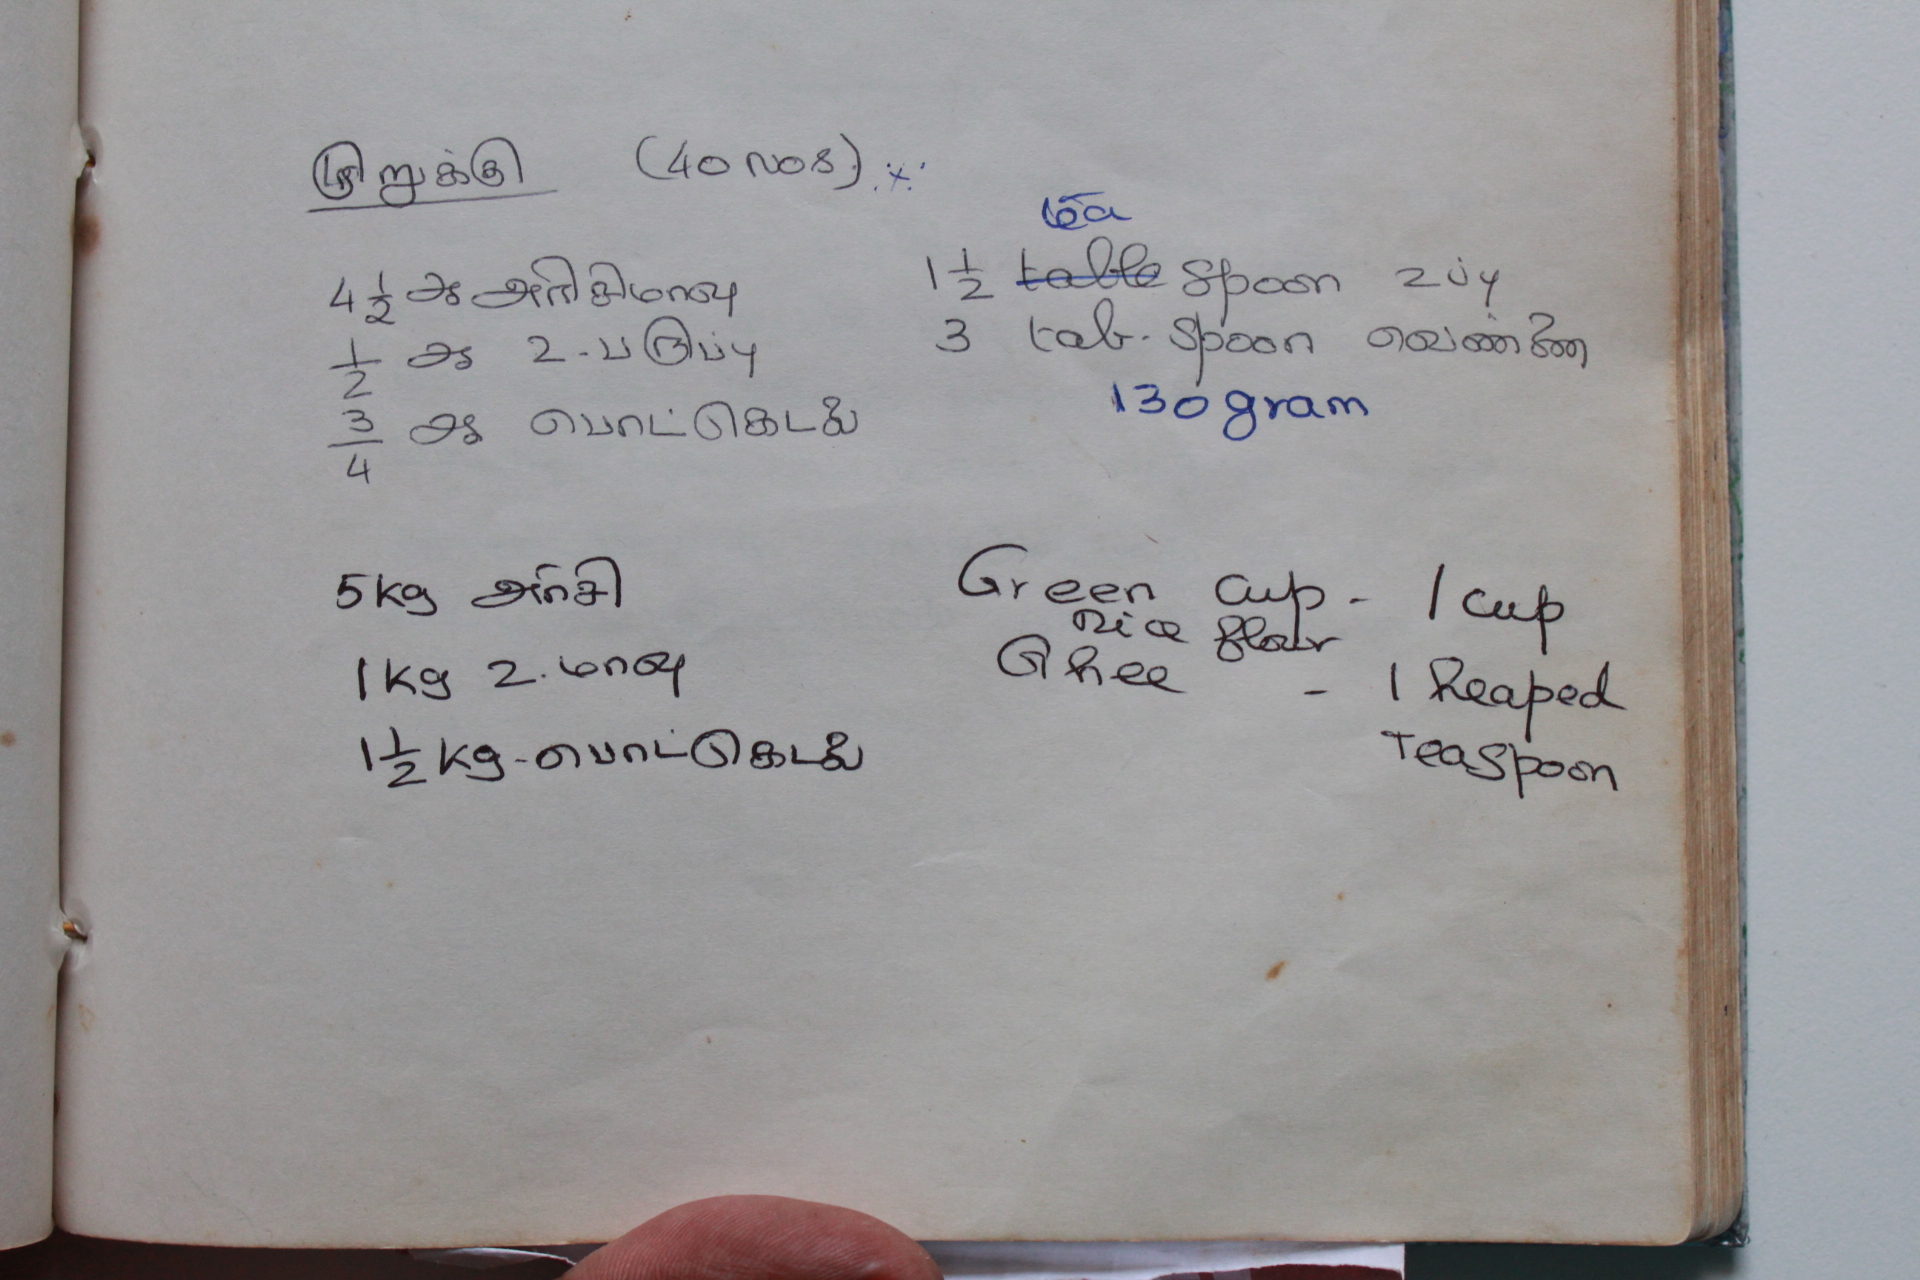 முறுக்கு (40 nos)
4 1/2 ஆ அரிசிமாவு
1/2 ஆ உ.பருப்பு
3/4 ஆ பொட்டுகடலை
டீ
1 1/2 table spoon உப்பு
3 tab. spoon வெண்ணை
130 gram
5 kg அரிசி
1 kg உ.மாவு
1 1/2 kg - பொட்டுகடலை
Green cup - 1 cup
rice flour
Ghee - 1 heaped
Teaspoon